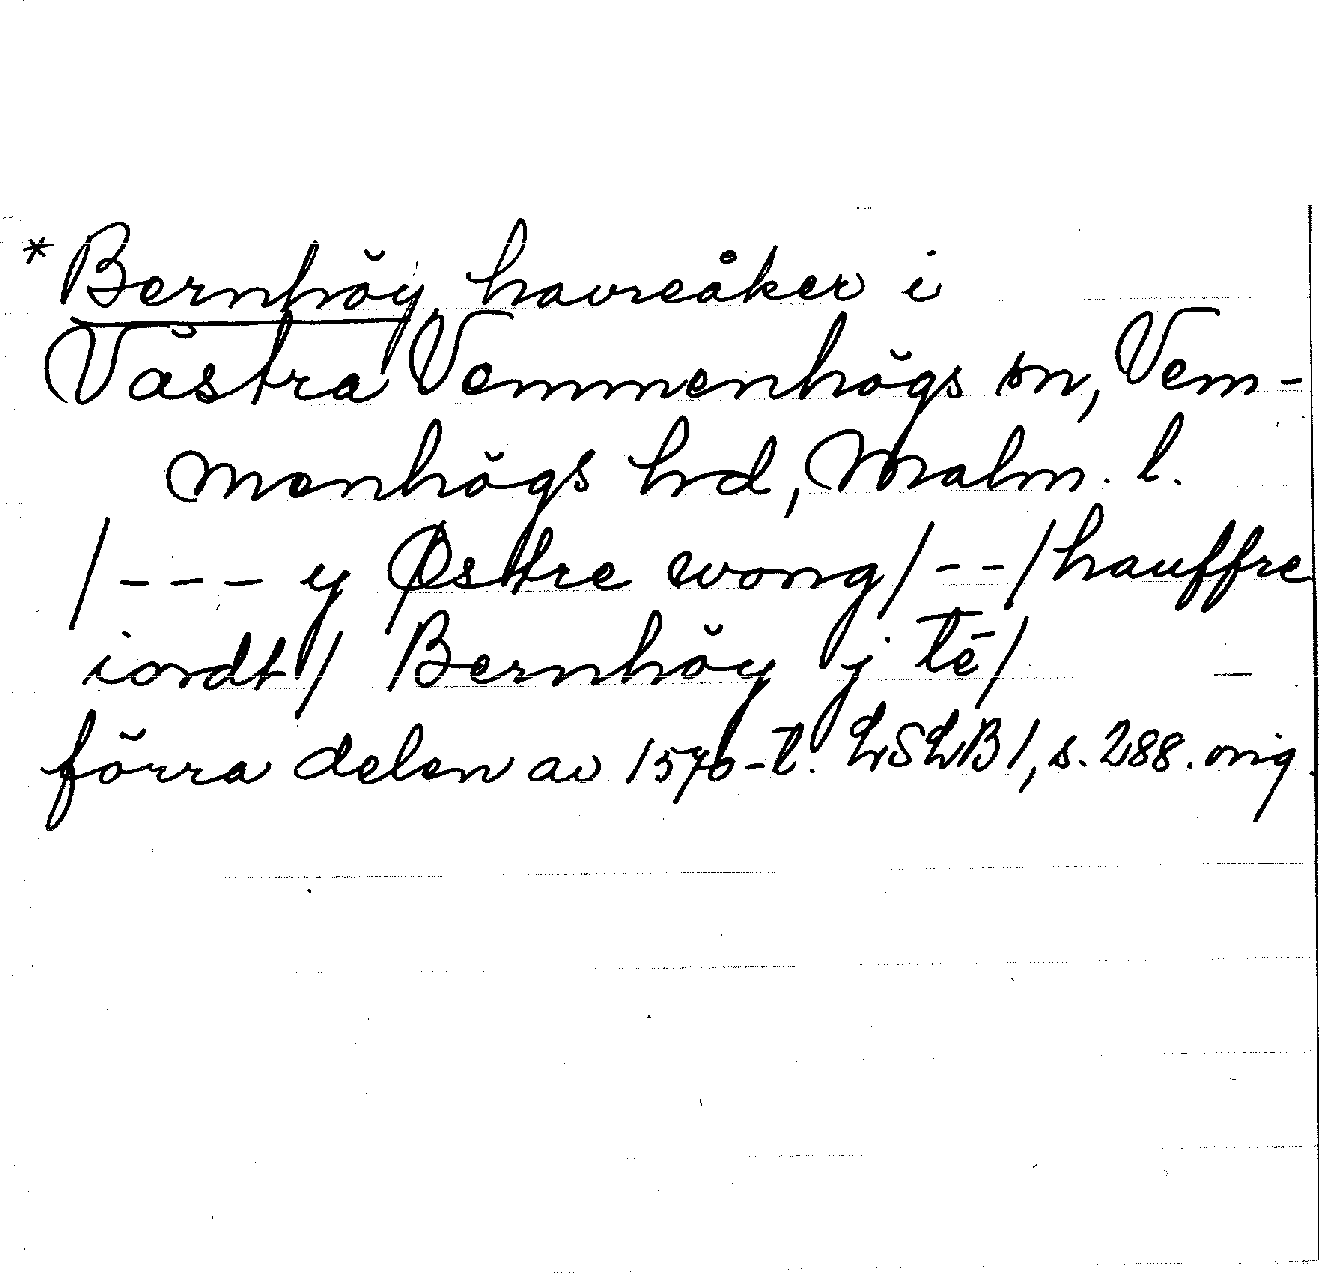 *Bernhöy, havreåker i
Västra Vemmenhögs sn, Vem-
menhögs hd, Malm. l.
/--- y Østre wong/--/hauffre
iordt/ Bernhöy j tē/
förra delen av 1570-t. LSLB 1, s. 288. orig.